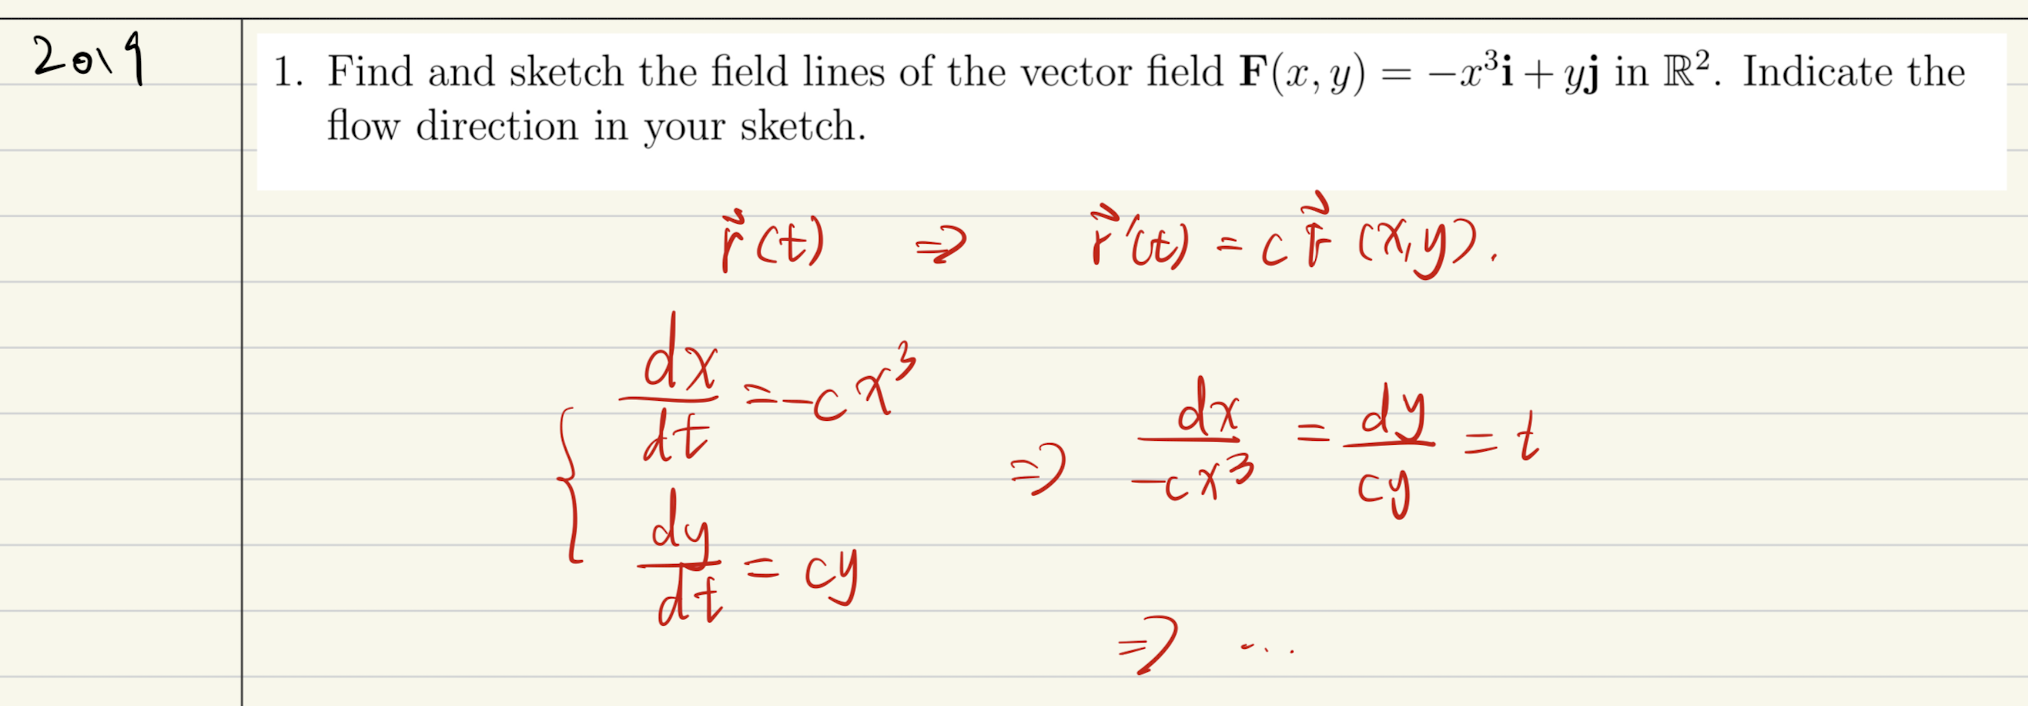 2019
1. Find and sketch the field lines of the vector field F(x, y) = −x³i + yj in ℝ². Indicate the
flow direction in your sketch.
r⃗(t) ⇒ r⃗'(t) = c F⃗ (x,y).
{ dx/dt = -cx³
dy/dt = cy
⇒ dx/-cx³ = dy/cy = t
⇒ ...